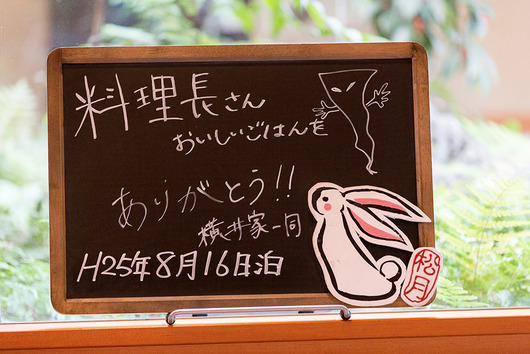 料理長さん
おいしいごはんを
ありがとう!!
横井家一同
H25年8月16日泊
松月